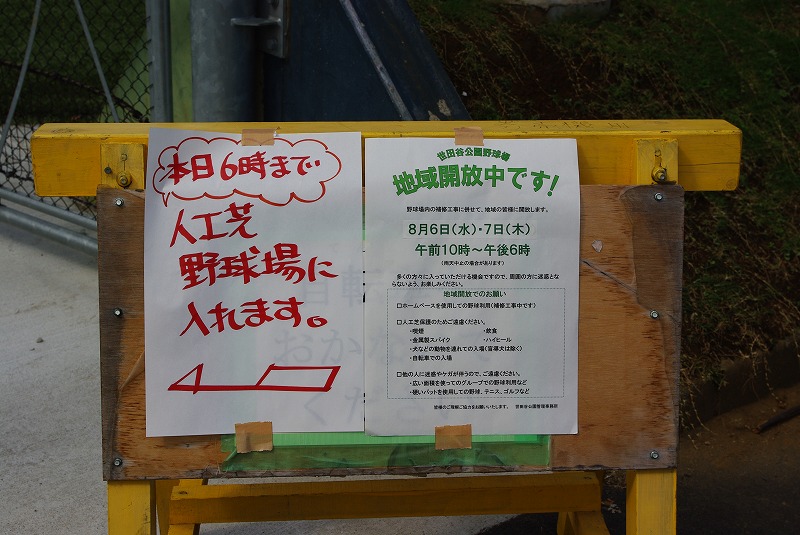 本日6時まで、
人工芝
野球場に
入れます。
世田谷公園野球場
地域開放中です!
野球場内の補修工事に併せて、地域の皆様に開放します。
8月6日(水)・7日(木)
午前10時～午後6時
(雨天中止の場合があります)
多くの方々に入っていただける機会ですので、周囲の方に迷惑とな
らないよう、お楽しみください。
地域開放でのお願い
□ホームベースを使用しての野球利用(補修工事中です)
□人工芝保護のためご遠慮ください。
・喫煙 ・飲食
・金属製スパイク ・ハイヒール
・犬などの動物を連れての入場(盲導犬は除く)
・自転車での入場
□他の人に迷惑やケガが伴うので、ご遠慮ください。
・広い面積を使ってのグループでの野球利用など
・硬いバットを使用しての野球、テニス、ゴルフなど
皆様のご理解ご協力をお願いいたします。 世田谷公園管理事務所